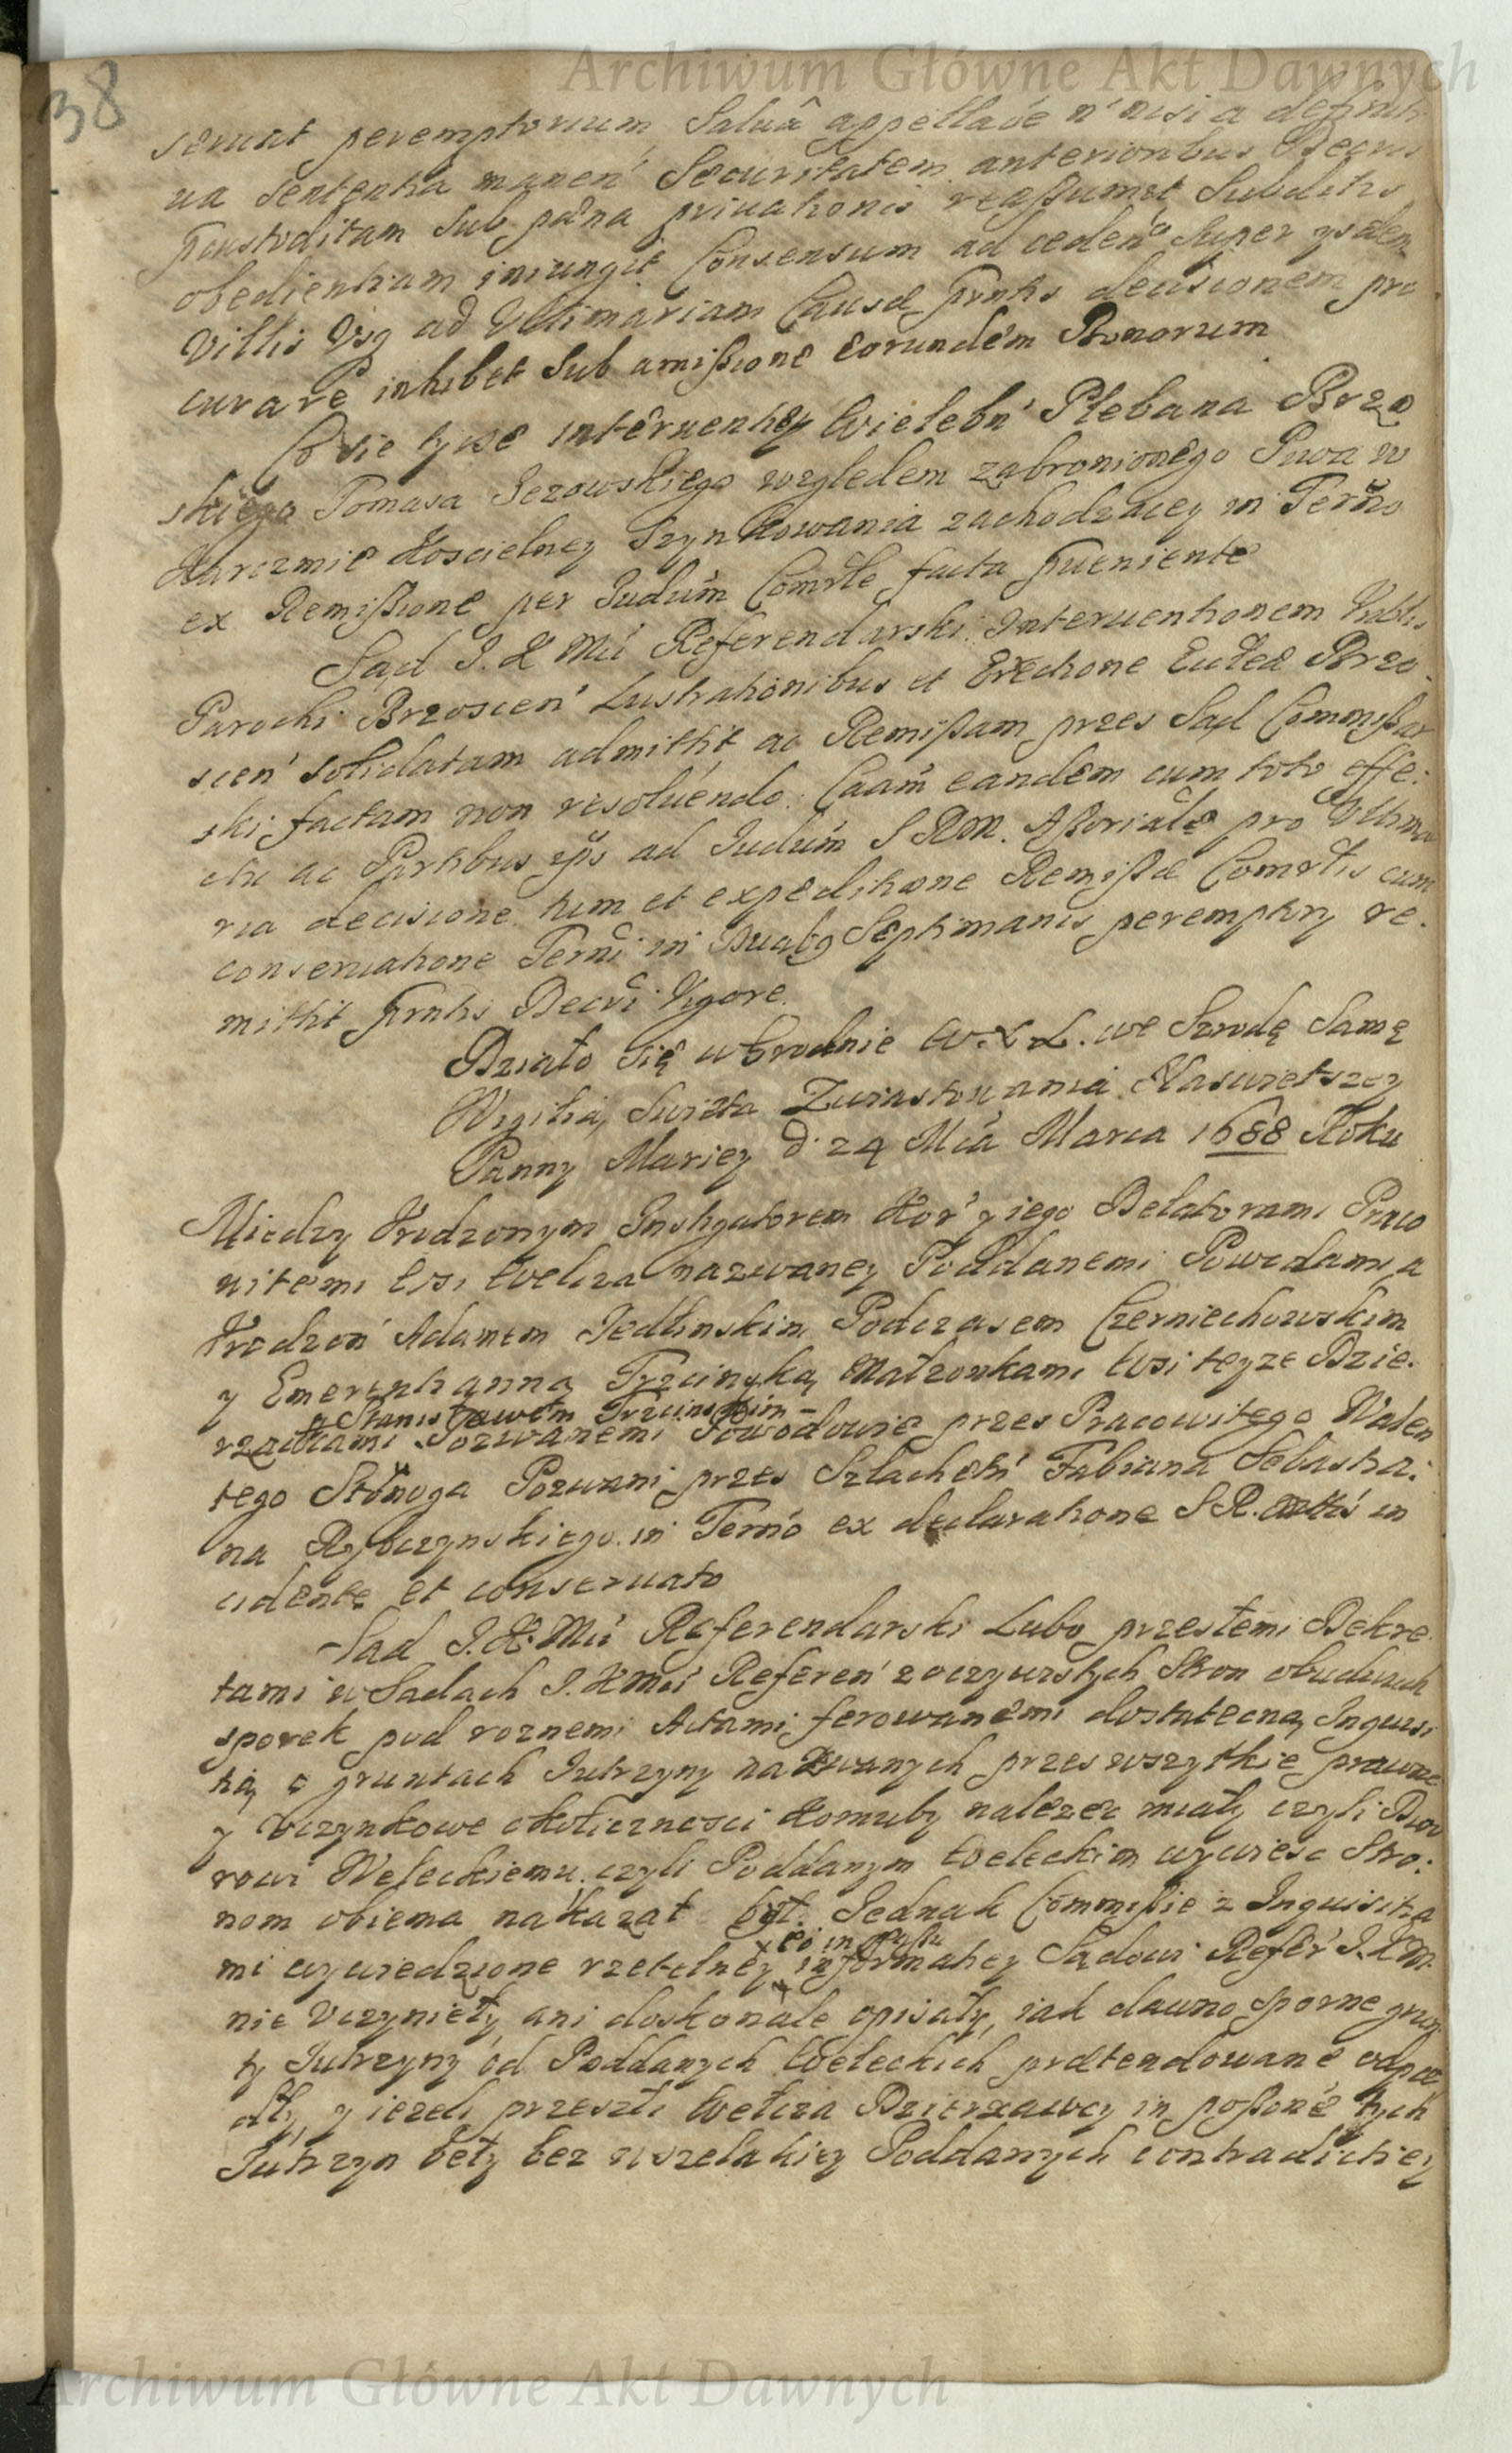 Archiwum Główne Akt Dawnych
38
seruat peremptorium, Saluâ appellaoē n' nisi a definiti
ua Sententia manen' Securitatem anterioribus Decris
pcustoditam Sub pœna priuationis reaßumet Subditis
obedientiam iniungit Consensum ad ceden̄ Super ysdem
Villis Vsq ad Vltimariam Causæ prntis decisionem pro
curare inhibet Sub amißione eorundem Bonorum
Co sie tycse interuentiey Wielebn' Plebana Brzo
skiego Tomasa Jezowskiego wzgledem zabronionego Piwa w
Karczmie Koscielney Szynkowania zachodzacey in Termo
ex Remißione per Judium Comrle facta prueniente
Sąd J. K Mci Referendarski Interuentionem Vnblis
Parochi Brzoscen' Lustrationibus et Erectione Ecclæ Brzo
scen' solidatam admittit, ac Remißam przes Sąd Commißar
ski factam non resoluendo. Caam eandem cum toto effe:
ctu ac Partibus ips ad Judium S RM. Aßoriale pro Vltima
ria decisione tum et expeditione Remißæ Comrlis cum
conseruatione Termi in Duabq Septimanis peremptry re.
mittit prntis Decri Vigore.
Działo się w Grodnie W. X L. we Szrodę Samę
Wigilią Swięta Zwiastowania Naswietszey
Panny Mariey d. 24 Mca Marca 1688 Roku
Miedzy Vrodzonym Instygatorem Kor' y iego Delatorami Praco
witemi Wsi Welcza nazwaney Poddanemi Powodami a
Vrodzon' Adamem Jedlinskim Podczasem Czerniechowskim
y Emerentianną Trzcinską Małzonkami Wsi teyze Dzie.
y Stanisławem Trzcinskim
rzawcami Pozwanemi Powodowie przes Pracowitego Walen
tego Stonoga Pozwani przes Szlachetn' Fabiana Sebastia:
na Rybczynskiego in Termo ex declaratione S R. Mttis in
cidente et conseruato
Sad J. K Mci Referendarski Lubo przestemi Dekre
tami w Sadach J. K Mci Referen' z oczywistych Stron obudwuch
sporek pod roznemi Actami ferowanemi dostateczną Inquisi
tią o gruntach Jutrzyny nazwanych przes wszytkie prawne
y Vczynkowe okolicznosci Komuby nalezec miały czyli Dwo
rowi Weleckiemu czyli Poddanym Weleckim wywiesc Stro:
nom obiema nakazał był. Jednak Commißie z Inquisitia
mi wywiedzione rzetelney informatiey Sądowi Refer' J. K M.
nie Vczynieły, ani doskonale opisały, iak dawno sporne grun
ty Jutrzyny od Poddanych Weleckich prætendowane odpa
dły, y iezeli przeszli Welcza Dzierzawcy in poßone tych
Jutrzyn beły bez wszelakiey Poddanych contradictiey
Archiwum Główne Akt Dawnych